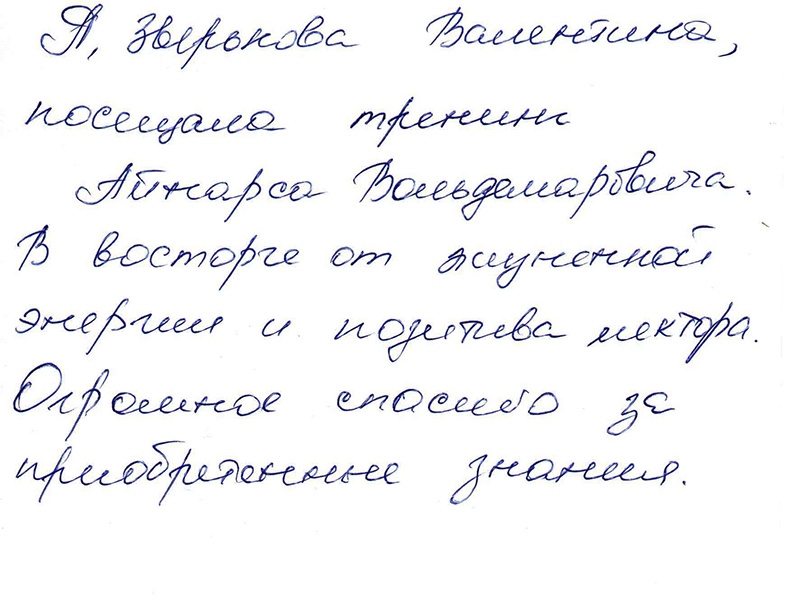 Я, Зверькова Валентина,
посещала тренинг
Айнарса Вольдемаровича.
В восторге от жизненной
энергии и позитива лектора.
Огромное спасибо за
приобретенные знания.